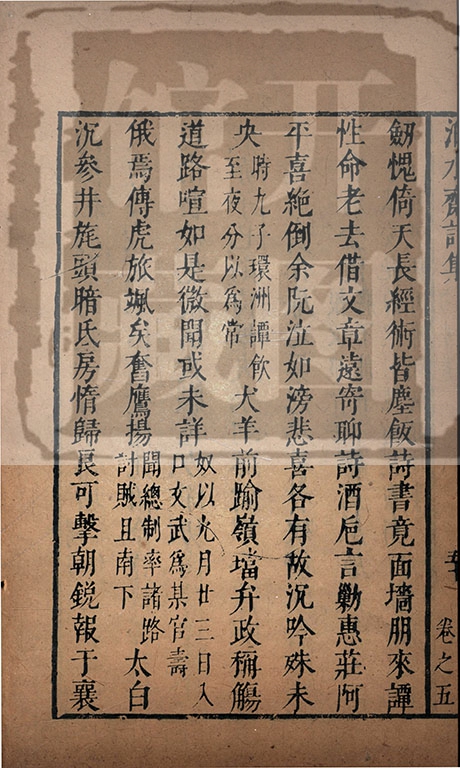 劒愧倚天長經術皆塵飯詩書竟面墻朋來譚
性命老去借文章遠寄聊詩酒巵言勦惠莊阿
平喜絶倒余阮泣如滂悲喜各有故沉吟殊未
央時九子環洲譚飲至夜分以爲常犬羊前踰嶺壋弁政稱觴
道路喧如是微聞或未詳奴以九月廿三日入口女武爲某官壽
俄焉傳虎旅颯矣奮鷹揚聞總制率諸路討賊且南下太白
沉參井旄頭暗氐房惰歸良可擊朝鋭報于襄
卷之五